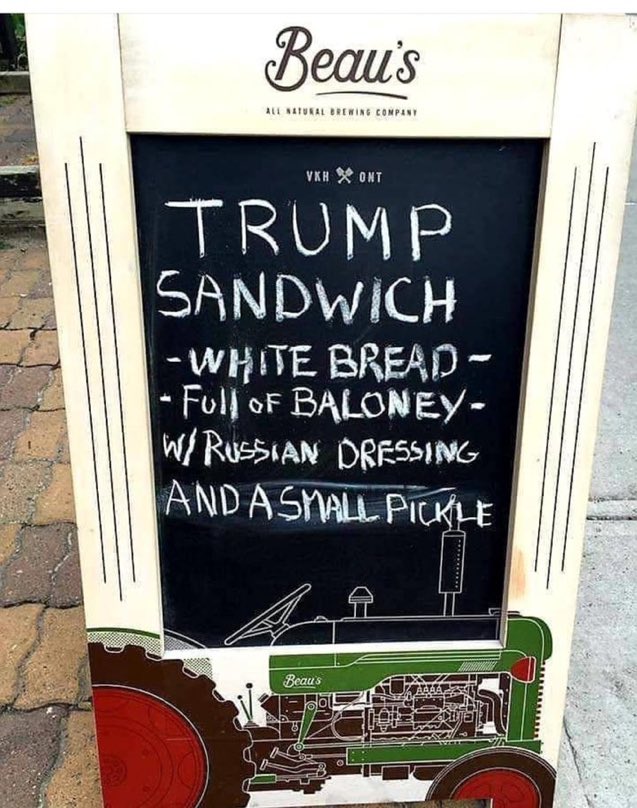 Beau's
ALL NATURAL BREWING COMPANY
VKH ONT
TRUMP
SANDWICH
-WHITE BREAD-
-Full oF BALONEY-
W/ RUSSIAN DRESSING
AND A SMALL PICKLE
Beau's